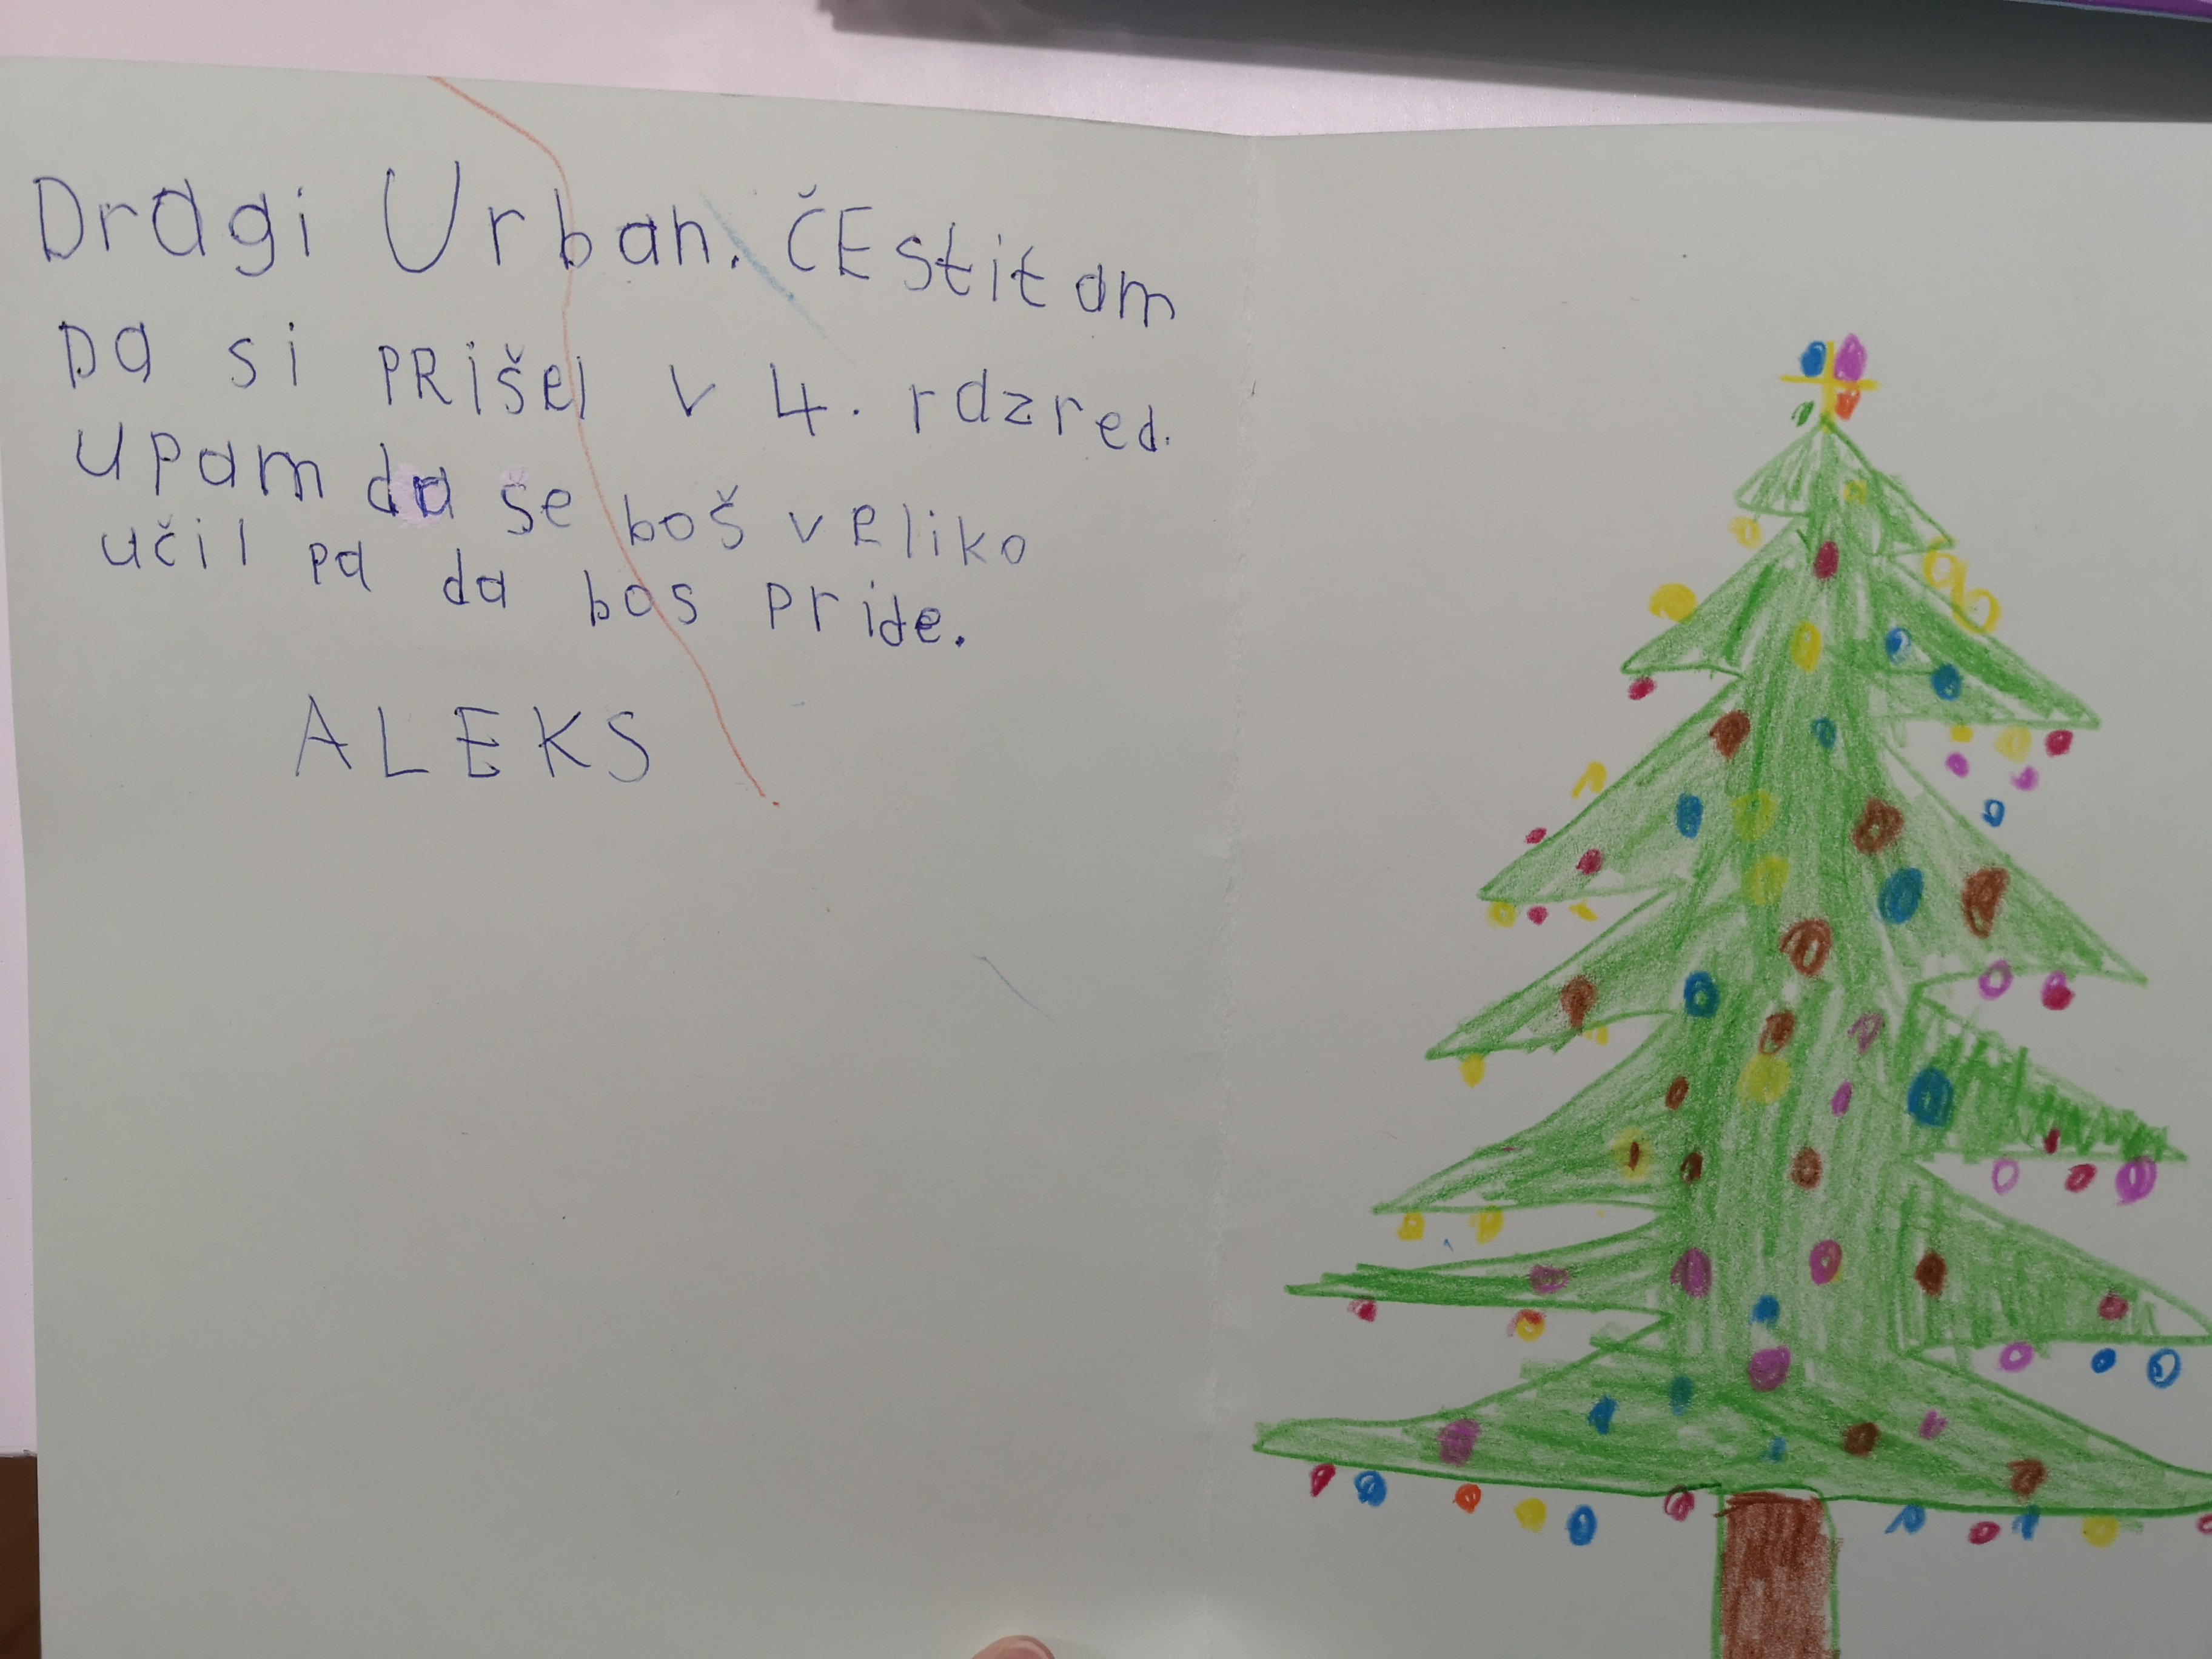 Dragi Urban. ČEstitam
Da si PRišel v 4. razred.
upam da se boš veliko
učil pa da bos pride.
ALEKS